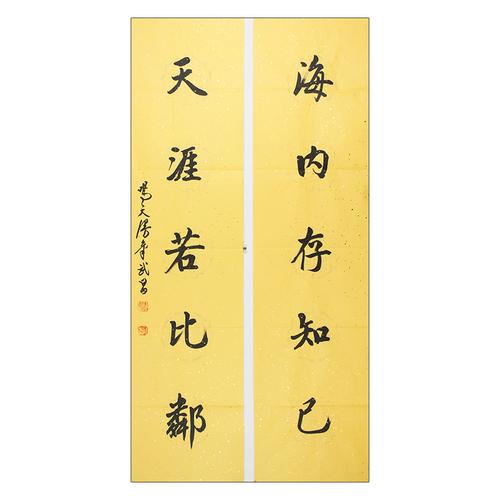 海内存知己
天涯若比鄰